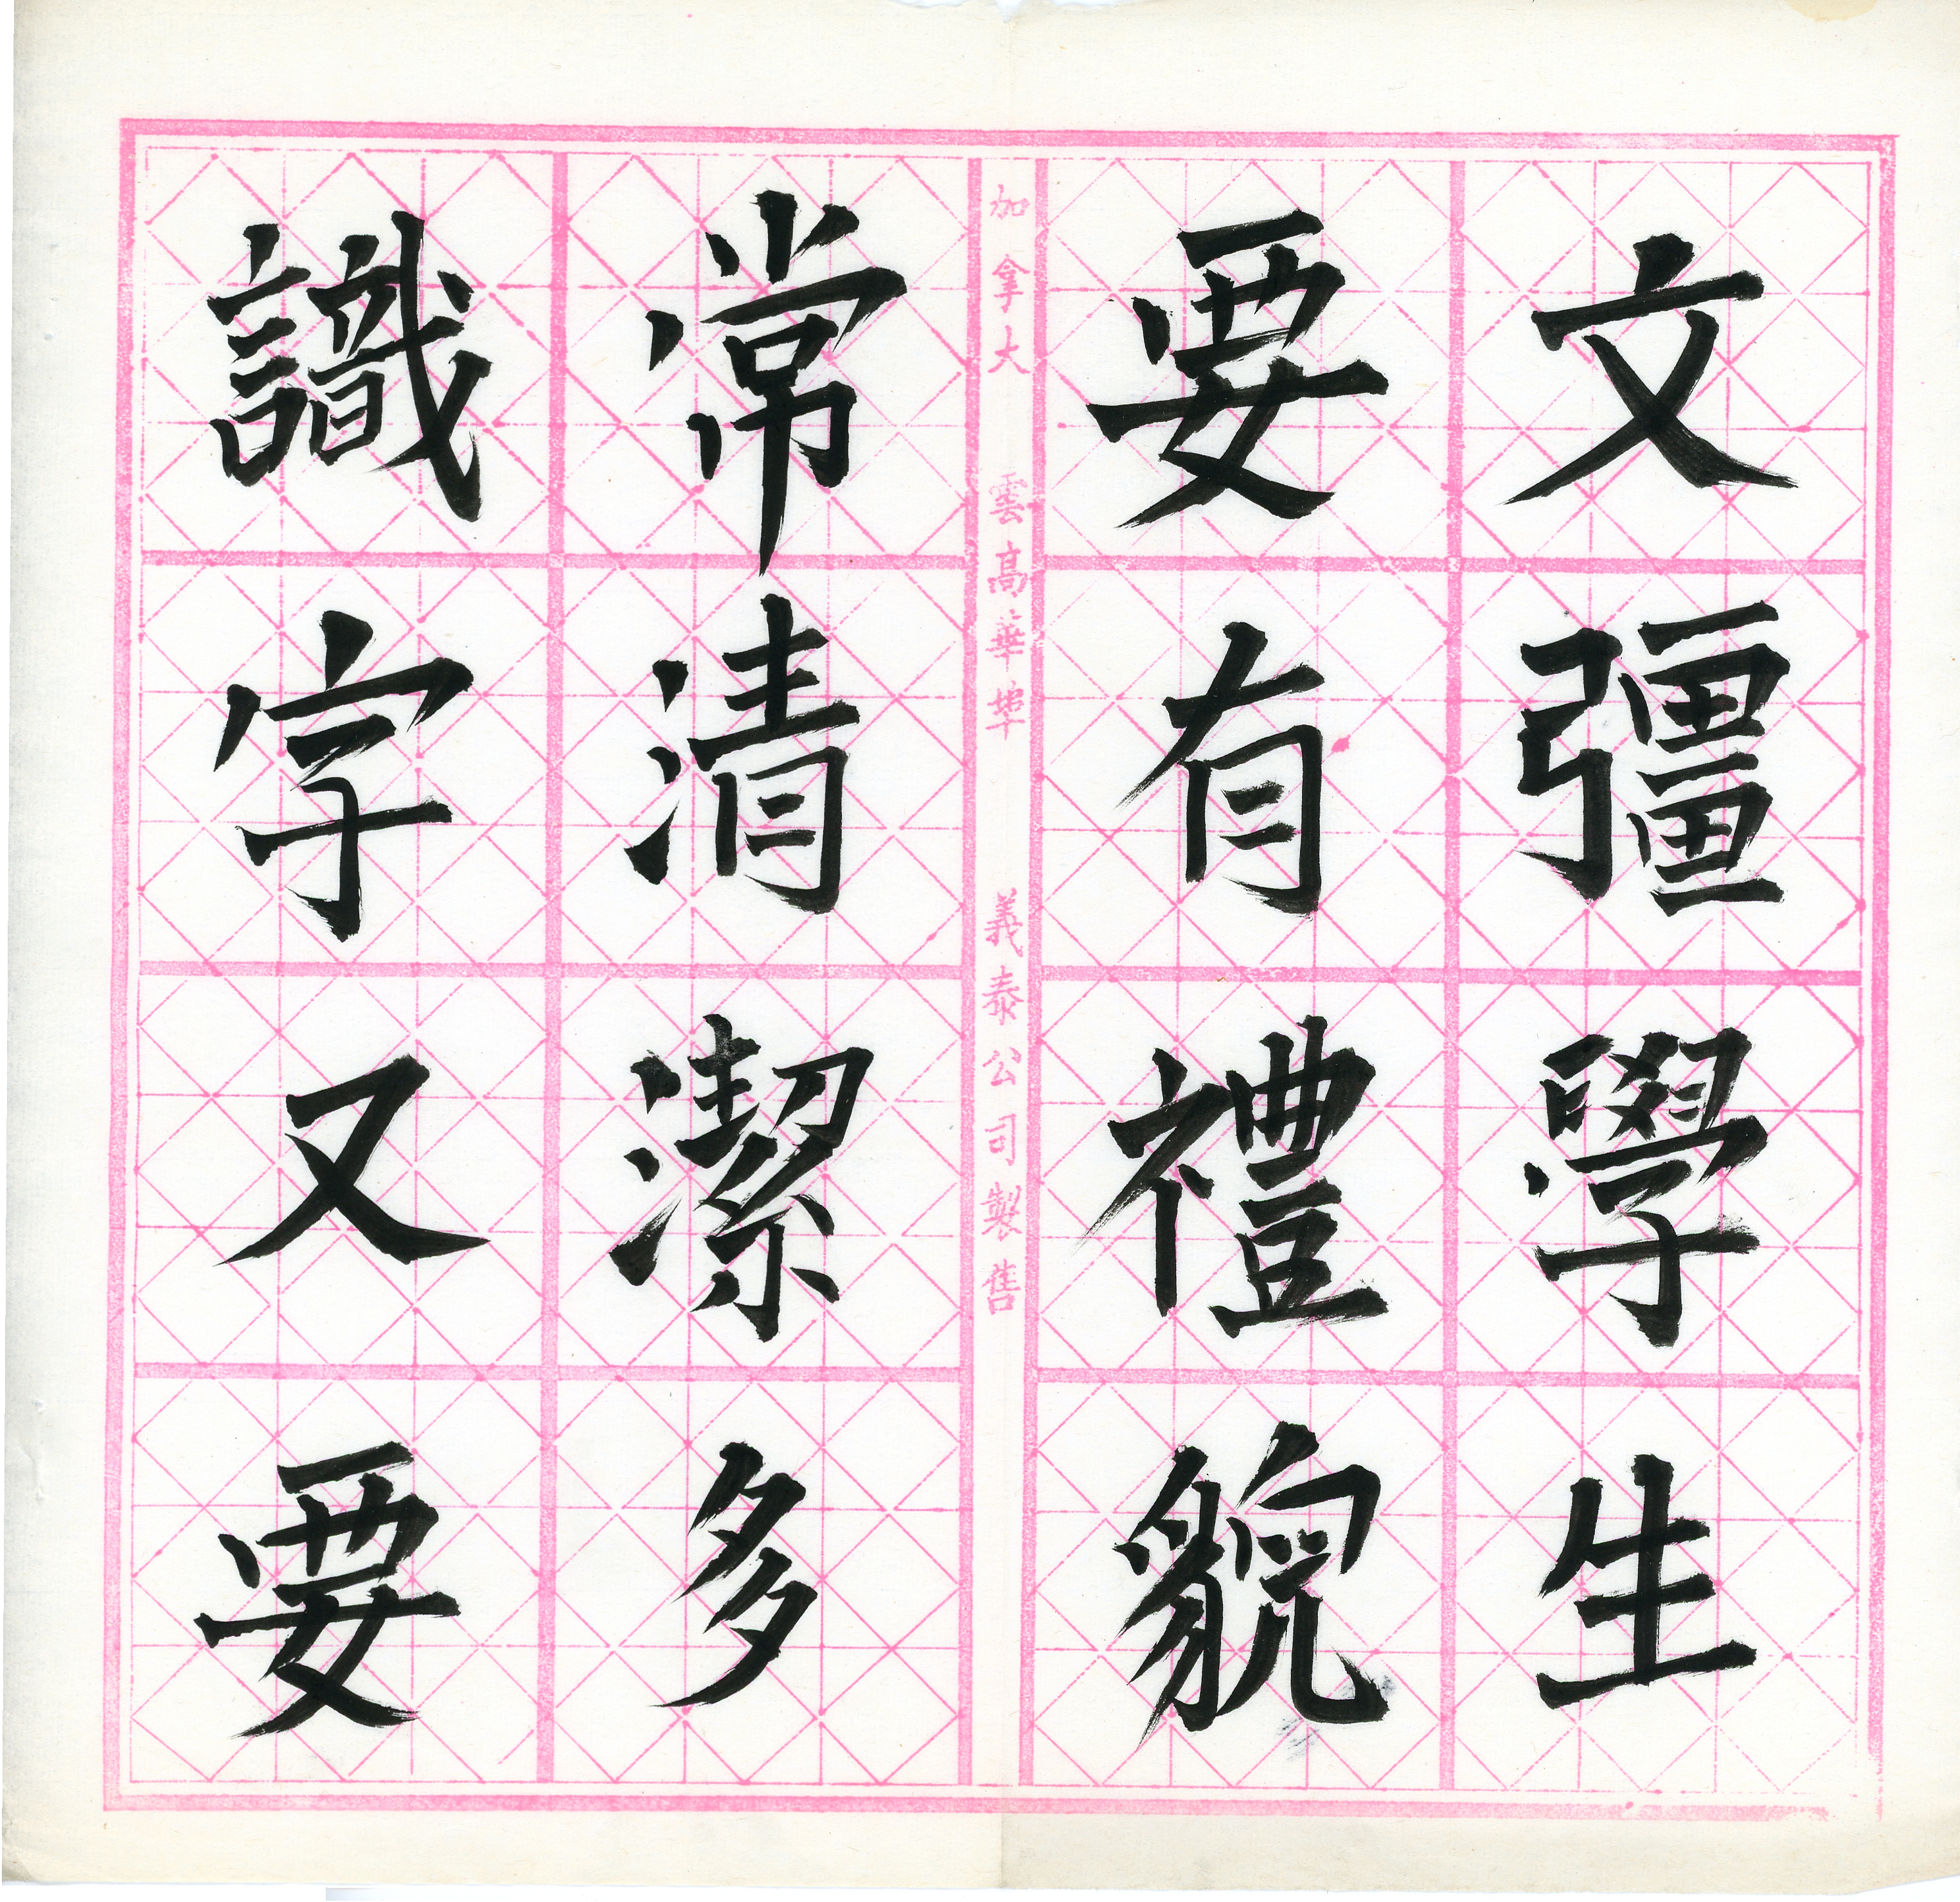 文彊學生
要有禮貌
加拿大 雲高華埠 義泰公司製售
常清潔多
識字又要